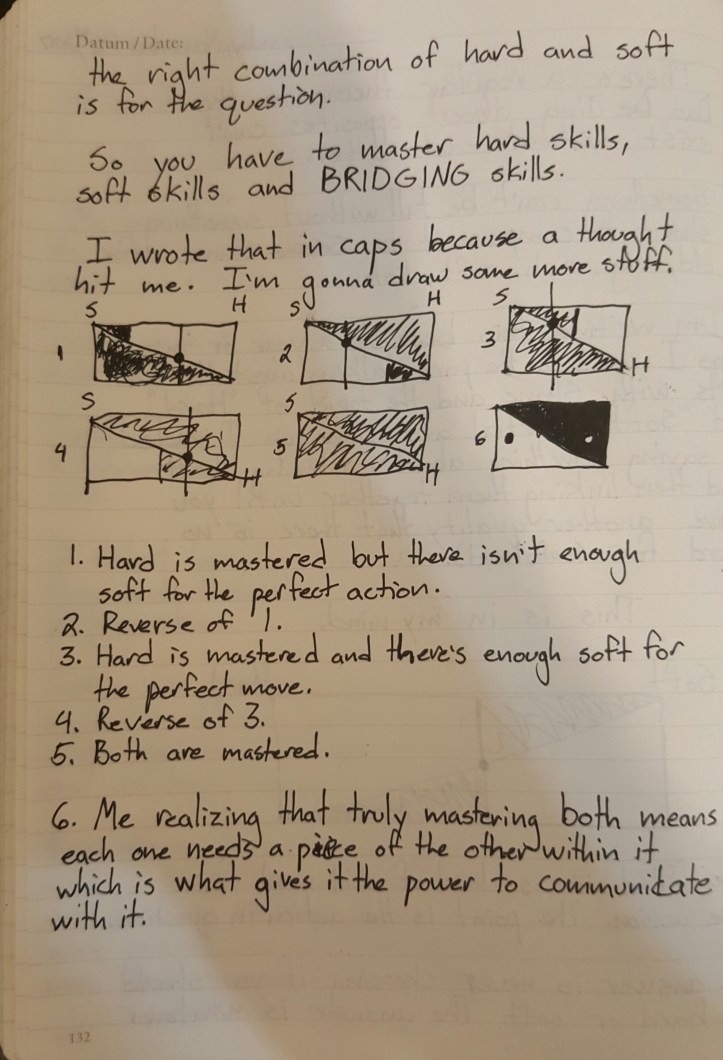 Datum / Date:
the right combination of hard and soft
is for the question.
So you have to master hard skills,
soft skills and BRIDGING skills.
I wrote that in caps because a thought
hit me. I'm gonna draw some more stuff.
S H S H S
1 2 3 H
S S
4 H 5 H 6
1. Hard is mastered but there isn't enough
soft for the perfect action.
2. Reverse of 1.
3. Hard is mastered and there's enough soft for
the perfect move.
4. Reverse of 3.
5. Both are mastered.
6. Me realizing that truly mastering both means
each one needs a piece of the other within it
which is what gives it the power to communicate
with it.
132